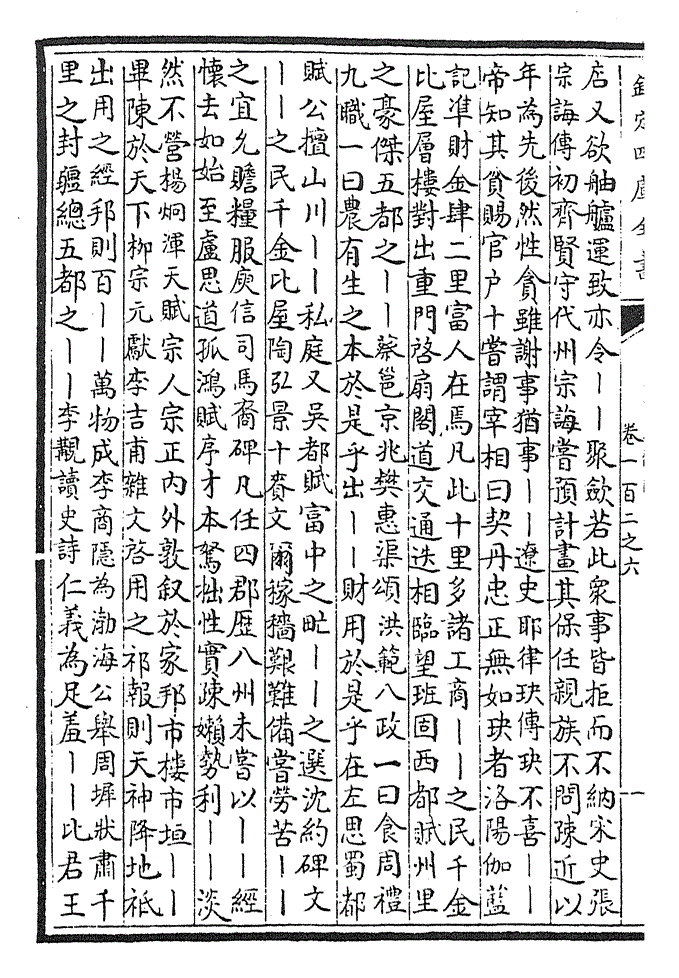 欽定四庫全書
卷一百二之六
店又欲舳艫運致亦令丨丨聚斂若此衆事皆拒而不納宋史張
宗誨傳初齊賢守代州宗誨嘗預計畫其保任親族不問疎近以
年為先後然性貪雖謝事猶事丨丨遼史耶律玦傳玦不喜丨丨
帝知其貧賜官户十嘗謂宰相曰契丹忠正無如玦者洛陽伽藍
記凖財金肆二里富人在焉凡此十里多諸工商丨丨之民千金
比屋層樓對出重門啓扇閣道交通迭相臨望班固西都賦州里
之豪傑五都之丨丨蔡邕京兆樊惠渠頌洪範八政一曰食周禮
九職一曰農有生之本於是乎出丨丨財用於是乎在左思蜀都
賦公擅山川丨丨私庭又吳都賦富中之甿丨丨之選沈約碑文
丨丨之民千金比屋陶弘景十賚文爾稼穡艱難備嘗勞苦丨丨
之宜允贍糧服庾信司馬裔碑凡任四郡歴八州未嘗以丨丨經
懷去如始至盧思道孤鴻賦序才本駑拙性實疎嬾勢利丨丨淡
然不營楊炯渾天賦宗人宗正内外敦叙於家邦市樓市垣丨丨
畢陳於天下柳宗元獻李吉甫雜文啓用之祁報則天神降地祗
出用之經邦則百丨丨萬物成李商隠為渤海公舉周墀狀肅千
里之封疆總五都之丨丨李覯讀史詩仁義為足羞丨丨比君王